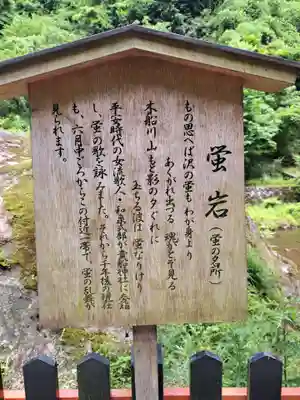 蛍岩
(蛍の名所)
もの思へば沢の蛍もわが身より
あくがれ出づる 魂かとぞ見る
木船川山もと影の夕ぐれに
玉ちる波は 蛍なりけり
平安時代の女流歌人・和泉式部が貴船神社に参詣
し、蛍の歌を詠みました。それから千年後の現在
も、六月中ごろからこの付近一帯で、蛍の乱舞が
見られます。